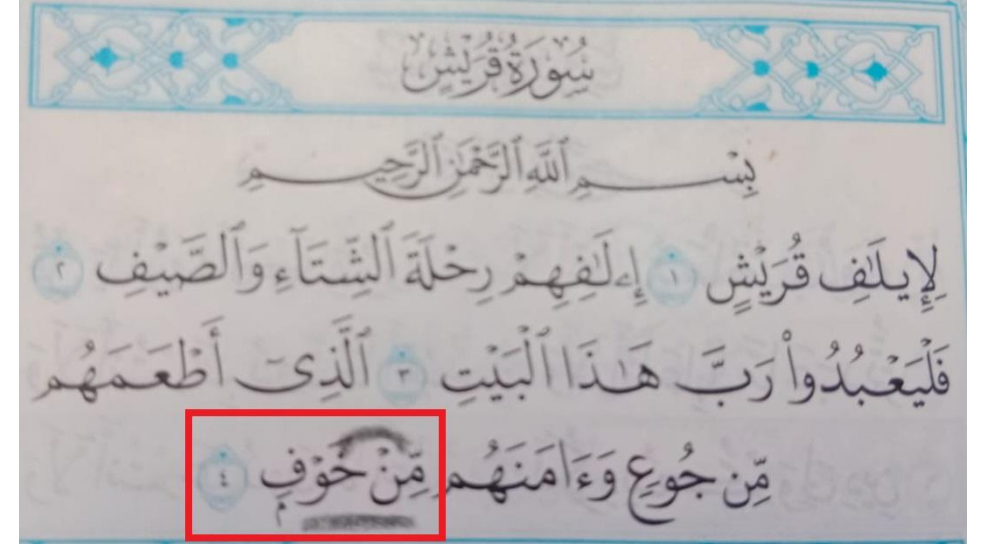 سُورَةُ قُرَيْشٍ
بِسْمِ ٱللَّهِ ٱلرَّحْمَٰنِ ٱلرَّحِيمِ
لِإِيلَٰفِ قُرَيْشٍ ١ إِۦلَٰفِهِمْ رِحْلَةَ ٱلشِّتَآءِ وَٱلصَّيْفِ ٢
فَلْيَعْبُدُوا۟ رَبَّ هَٰذَا ٱلْبَيْتِ ٣ ٱلَّذِىٓ أَطْعَمَهُم
مِّن جُوعٍ وَءَامَنَهُم مِّنْ خَوْفٍۭ ٤